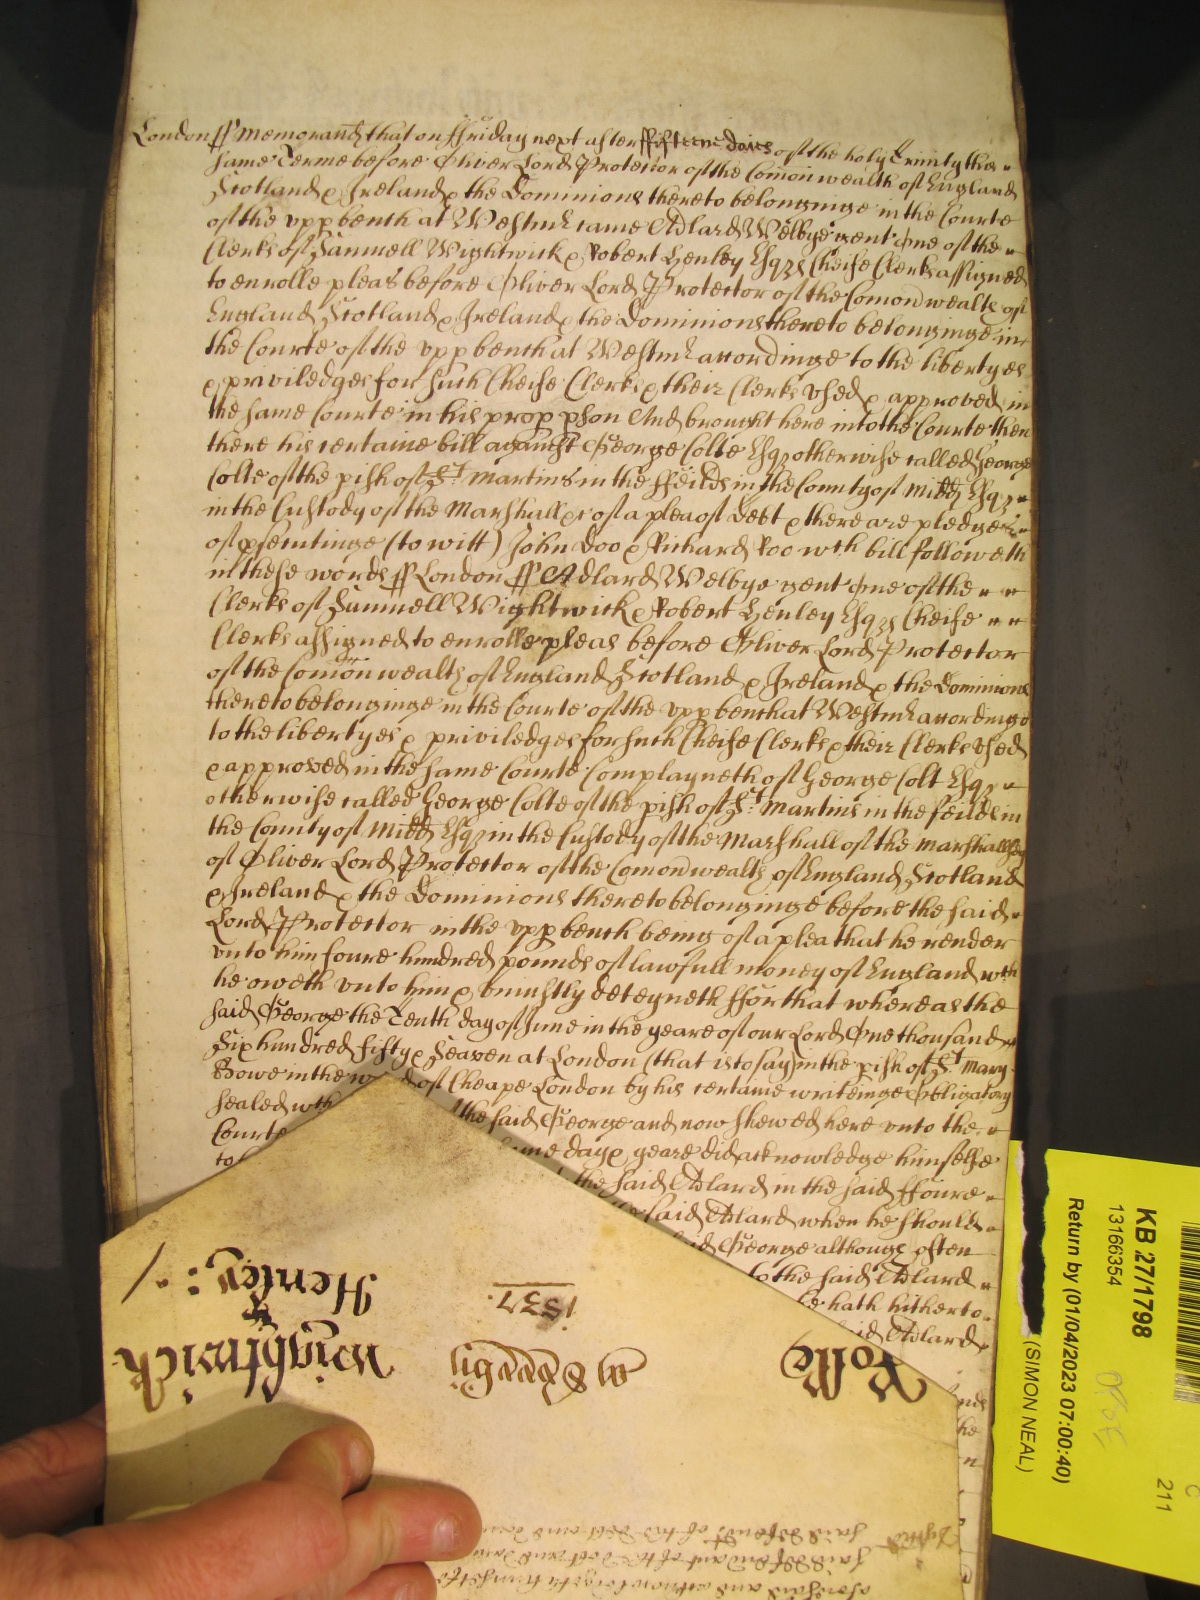 London ss Memorand that on ffriday next after ffifteene daies of the holy Trinity this
same Terme before Oliver Lord Protector of the Comon wealth of England
Scotland & Ireland & the Dominions thereto belonginge in the Courte
of the vpp bench at Westmr came Adlard Welbye gent One of the
Clerks of Samuell Wightwick & Robert Henley Esqrs Cheife Clerks assigned
to enrolle pleas before Oliver Lord Protector of the Comonwealth of
England Scotland & Ireland & the Dominions thereto belonginge in
the Courte of the vpp bench at Westmr accordinge to the libertyes
& priviledges for such Cheife Clerks & their Clerks vsed & approved in
the same Courte in his prop pson And brought here into the Courte then
there his certaine bill against George Colte Esqr otherwise called George
Colte of the pish of St. Martins in the ffeilds in the County of Midd Esqr
in the Custody of the Marshall &c of a plea of Debt & there are pledges
of psecutinge (to witt) John Doo & Richard Roo wch bill followeth
in these words ss London ss Adlard Welbye gent One of the
Clerks of Samuell Wightwick & Robert Henley Esqrs Cheife
Clerks assigned to enrolle pleas before Oliver Lord Protector
of the Comon wealth of England Scotland & Ireland & the Dominions
thereto belonginge in the Courte of the vpp bench at Westmr accordinge
to the libertyes & priviledges for such Cheife Clerks & their Clerks vsed
& approved in the same Courte Complayneth of George Colt Esqr
otherwise called George Colte of the pish of St. Martins in the feilds in
the County of Midd Esqr in the Custody of the Marshall of the Marshallsey
of Oliver Lord Protector of the Comonwealth of England Scotland
& Ireland & the Dominions thereto belonginge before the said
Lord Protector in the vpp bench being of a plea that he render
vnto him foure hundred pounds of lawfull money of England wch
he oweth vnto him & vniustly deteyneth ffor that whereas the
said George the Tenth day of June in the yeare of our Lord One thousand
Six hundred fifty & Seaven at London (that is to say) in the pish of St Mary
Bowe in the of Cheape London by his certaine writeinge Obligatory
sealed wth the said George and now shewed here vnto the
Courte day & yeare did acknowledge himselfe
to the said Adlard in the said ffoure
said Adlard when he should
George althouge often
to the said Adlard
he hath hitherto
Adlard
Rolle
Wightwick
&
Henley : /
1537.
KB 27/1798
13166354
Return by (01/04/2023 07:00:40)
(SIMON NEAL)
211